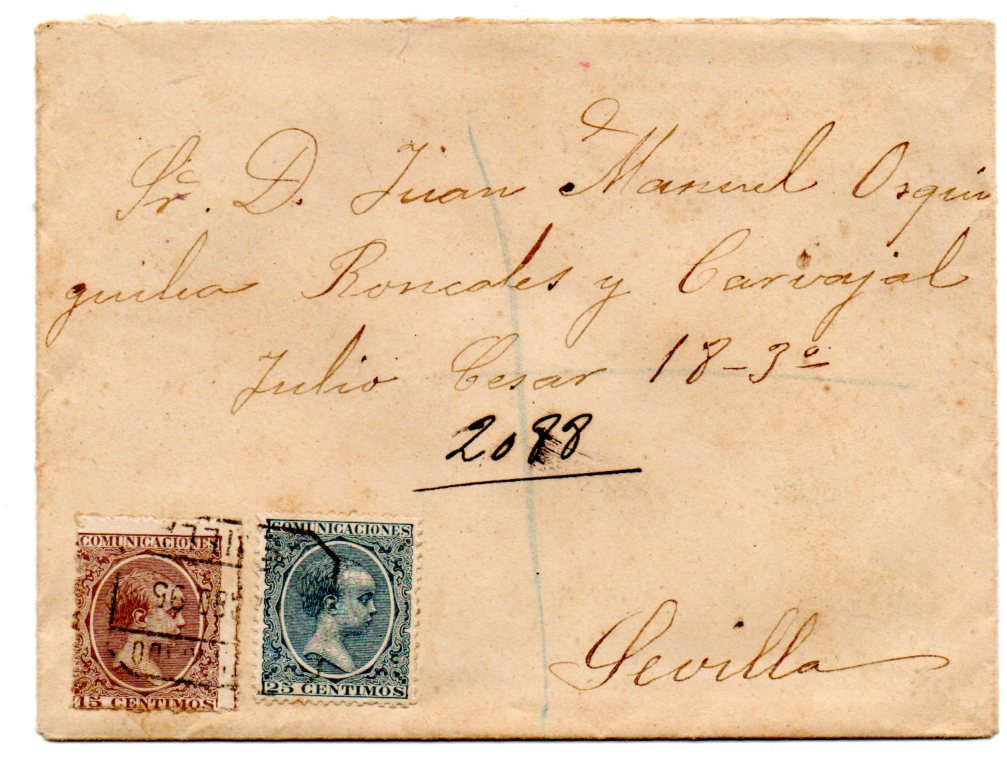 Sr. D. Juan Manuel Osquin
guilea Roncales y Carvajal
Julio Cesar 18-3º
2088
COMUNICACIONES
15 CENTIMOS
COMUNICACIONES
25 CENTIMOS
95
Sevilla